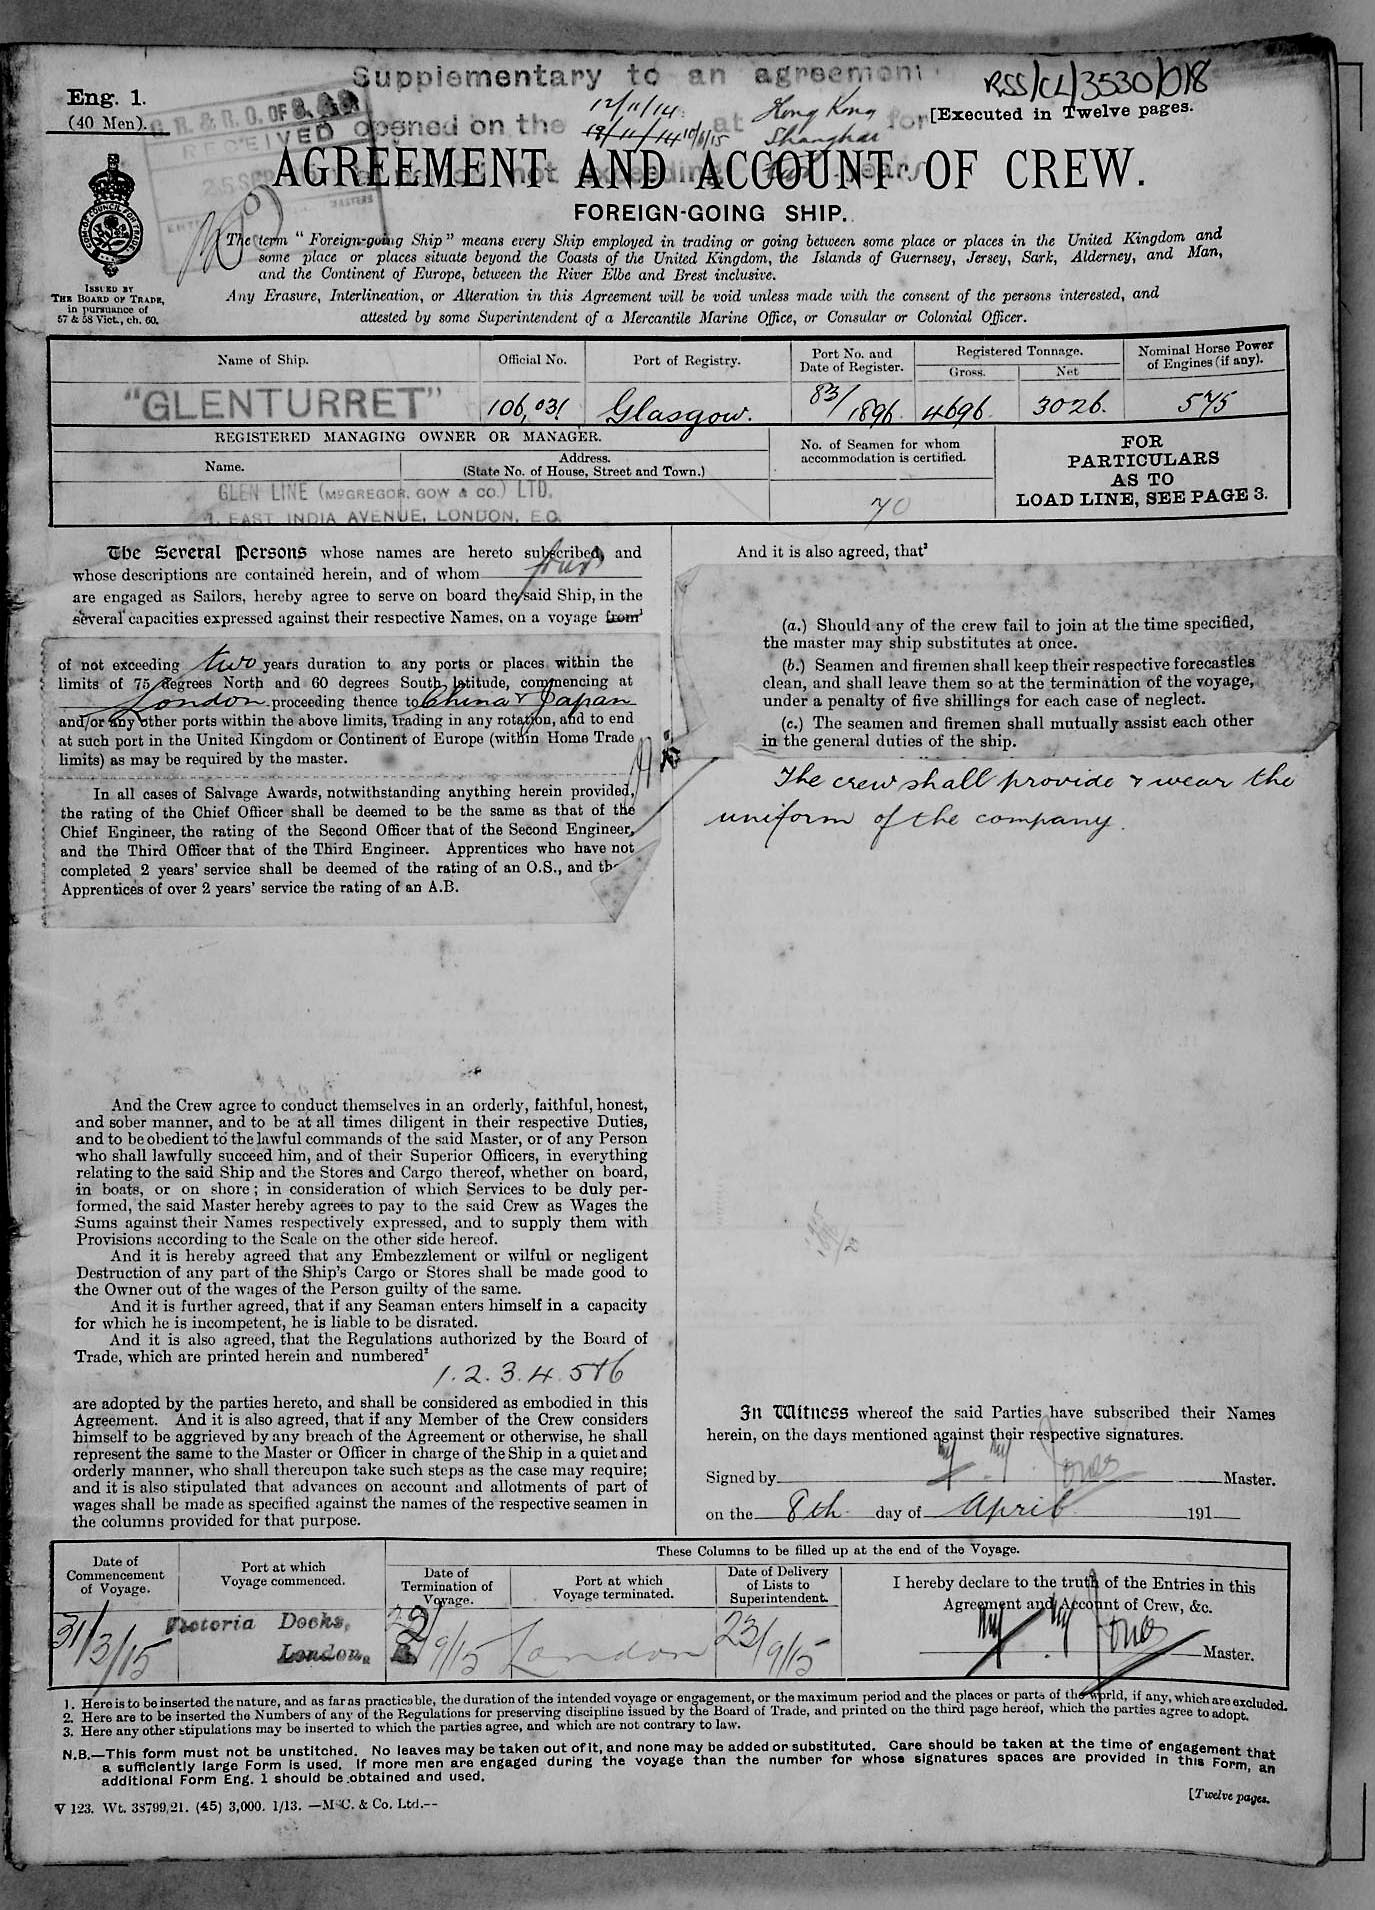 Supplementary to an agreement
RSS/CL/3530/018
Eng. 1.
(40 Men).
12/11/14 Hong Kong
[Executed in Twelve pages.
R. & R. O. OF S.
RECEIVED
opened on the 18/11/14 10/6/15 at Shanghai for
AGREEMENT AND ACCOUNT OF CREW.
not exceeding two years
FOREIGN-GOING SHIP.
The term "Foreign-going Ship" means every Ship employed in trading or going between some place or places in the United Kingdom and
some place or places situate beyond the Coasts of the United Kingdom, the Islands of Guernsey, Jersey, Sark, Alderney, and Man,
and the Continent of Europe, between the River Elbe and Brest inclusive.
ISSUED BY
THE BOARD OF TRADE,
in pursuance of
57 & 58 Vict., ch. 60.
Any Erasure, Interlineation, or Alteration in this Agreement will be void unless made with the consent of the persons interested, and
attested by some Superintendent of a Mercantile Marine Office, or Consular or Colonial Officer.
Name of Ship. Official No. Port of Registry. Port No. and Date of Register. Registered Tonnage. Gross. Net Nominal Horse Power of Engines (if any).
"GLENTURRET" 106,031 Glasgow. 83/1896. 4696. 3026. 575
REGISTERED MANAGING OWNER OR MANAGER.
Name. Address.
(State No. of House, Street and Town.)
No. of Seamen for whom
accommodation is certified.
FOR
PARTICULARS
AS TO
LOAD LINE, SEE PAGE 3.
GLEN LINE (McGREGOR, GOW & CO.) LTD.
1, EAST INDIA AVENUE, LONDON, E.C.
70
The Several Persons whose names are hereto subscribed, and
whose descriptions are contained herein, and of whom four
are engaged as Sailors, hereby agree to serve on board the said Ship, in the
several capacities expressed against their respective Names, on a voyage from¹
of not exceeding two years duration to any ports or places within the
limits of 75 degrees North and 60 degrees South latitude, commencing at
London proceeding thence to China & Japan
and/or any other ports within the above limits, trading in any rotation, and to end
at such port in the United Kingdom or Continent of Europe (within Home Trade
limits) as may be required by the master.
In all cases of Salvage Awards, notwithstanding anything herein provided,
the rating of the Chief Officer shall be deemed to be the same as that of the
Chief Engineer, the rating of the Second Officer that of the Second Engineer,
and the Third Officer that of the Third Engineer. Apprentices who have not
completed 2 years' service shall be deemed of the rating of an O.S., and th
Apprentices of over 2 years' service the rating of an A.B.
And the Crew agree to conduct themselves in an orderly, faithful, honest,
and sober manner, and to be at all times diligent in their respective Duties,
and to be obedient to the lawful commands of the said Master, or of any Person
who shall lawfully succeed him, and of their Superior Officers, in everything
relating to the said Ship and the Stores and Cargo thereof, whether on board,
in boats, or on shore; in consideration of which Services to be duly per-
formed, the said Master hereby agrees to pay to the said Crew as Wages the
Sums against their Names respectively expressed, and to supply them with
Provisions according to the Scale on the other side hereof.
And it is hereby agreed that any Embezzlement or wilful or negligent
Destruction of any part of the Ship's Cargo or Stores shall be made good to
the Owner out of the wages of the Person guilty of the same.
And it is further agreed, that if any Seaman enters himself in a capacity
for which he is incompetent, he is liable to be disrated.
And it is also agreed, that the Regulations authorized by the Board of
Trade, which are printed herein and numbered²
1. 2. 3. 4. 5 & 6
are adopted by the parties hereto, and shall be considered as embodied in this
Agreement. And it is also agreed, that if any Member of the Crew considers
himself to be aggrieved by any breach of the Agreement or otherwise, he shall
represent the same to the Master or Officer in charge of the Ship in a quiet and
orderly manner, who shall thereupon take such steps as the case may require;
and it is also stipulated that advances on account and allotments of part of
wages shall be made as specified against the names of the respective seamen in
the columns provided for that purpose.
And it is also agreed, that³
(a.) Should any of the crew fail to join at the time specified,
the master may ship substitutes at once.
(b.) Seamen and firemen shall keep their respective forecastles
clean, and shall leave them so at the termination of the voyage,
under a penalty of five shillings for each case of neglect.
(c.) The seamen and firemen shall mutually assist each other
in the general duties of the ship.
The crew shall provide & wear the
uniform of the company.
In Witness whereof the said Parties have subscribed their Names
herein, on the days mentioned against their respective signatures.
Signed by Jones Master.
on the 8th day of April 191
Date of
Commencement
of Voyage.
Port at which
Voyage commenced.
These Columns to be filled up at the end of the Voyage.
Date of
Termination of
Voyage.
Port at which
Voyage terminated.
Date of Delivery
of Lists to
Superintendent.
I hereby declare to the truth of the Entries in this
Agreement and Account of Crew, &c.
31/3/15 Victoria Docks, London. 22/9/15 London 23/9/15 Jones Master.
1. Here is to be inserted the nature, and as far as practicable, the duration of the intended voyage or engagement, or the maximum period and the places or parts of the world, if any, which are excluded.
2. Here are to be inserted the Numbers of any of the Regulations for preserving discipline issued by the Board of Trade, and printed on the third page hereof, which the parties agree to adopt.
3. Here any other stipulations may be inserted to which the parties agree, and which are not contrary to law.
N.B.—This form must not be unstitched. No leaves may be taken out of it, and none may be added or substituted. Care should be taken at the time of engagement that
a sufficiently large Form is used. If more men are engaged during the voyage than the number for whose signatures spaces are provided in this Form, an
additional Form Eng. 1 should be obtained and used.
V 123. Wt. 38799/21. (45) 3,000. 1/13. —McC. & Co. Ltd.--
[Twelve pages.